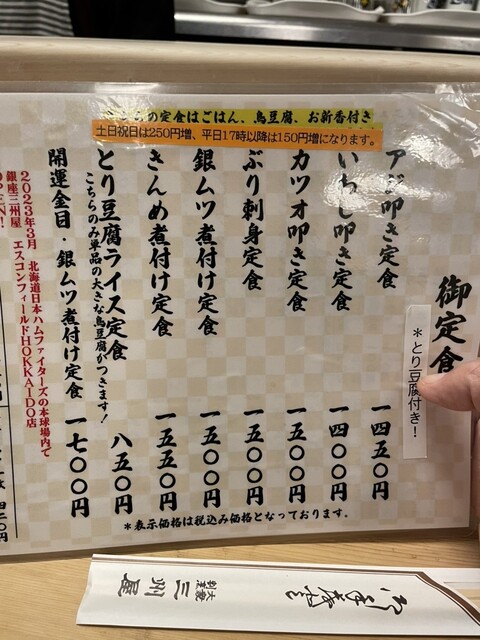 の定食はごはん、鳥豆腐、お新香付き
土日祝日は250円増、平日17時以降は150円増になります。
御定食
*とり豆腐付き!
アジ叩き定食 一四五〇円
いわし叩き定食 一四〇〇円
カツオ叩き定食 一五〇〇円
ぶり刺身定食 一五〇〇円
銀ムツ煮付け定食 一五〇〇円
きんめ煮付け定食 一五五〇円
とり豆腐ライス定食 八五〇円
こちらのみ単品の大きな鳥豆腐がつきます!
開運金目・銀ムツ煮付け定食 一七〇〇円
2023年3月 北海道日本ハムファイターズの本球場内で
銀座三州屋 エスコンフィールドHOKKAIDO店
EN!
*表示価格は税込み価格となっております。
大衆
割烹
三州屋